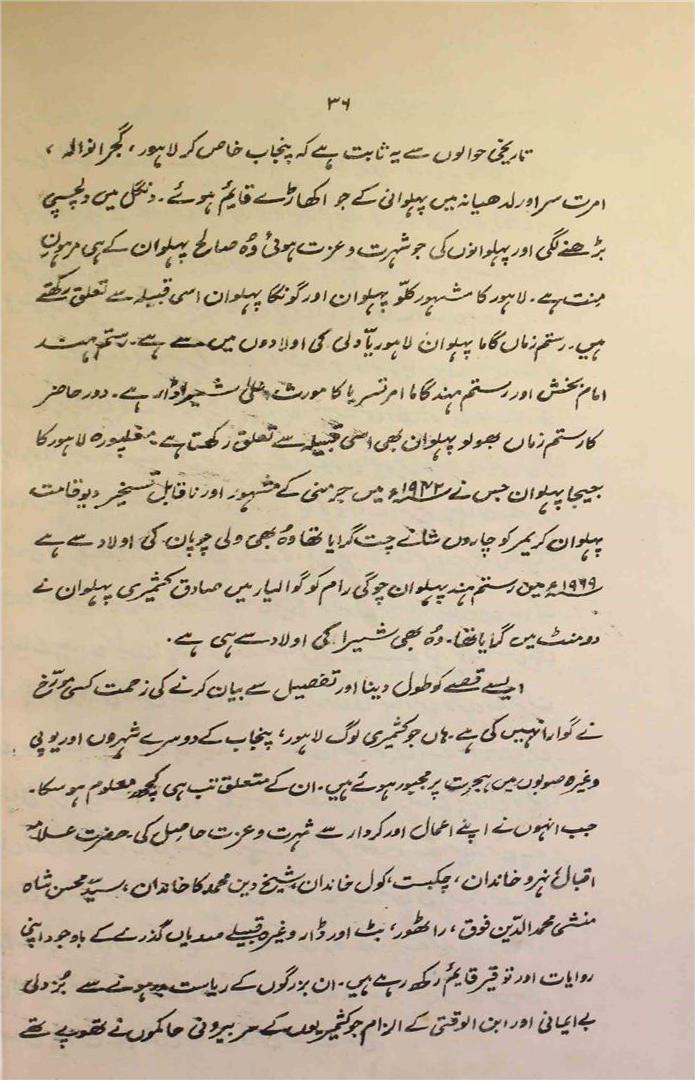 ۳۶
تاریخی حوالوں سے یہ ثابت ہے کہ پنجاب خاص کر لاہور، گجرانوالہ،
امرت سر اور لدھیانہ میں پہلوانی کے جو اکھاڑے قایٔم ہوئے۔ دنگل میں دلچسپی
بڑھنے لگی اور پہلوانوں کی جو شہرت و عزت ہوئی وُہ صالح پہلوان کے ہی مرہونِ
منت ہے۔ لاہور کا مشہور کلّو پہلوان اور گونگا پہلوان اسی قبیلہ سے تعلق رکھتے
ہیں۔ رستم زماں گاما پہلوان لاہوریاّ ولی کی اولادوں میں سے ہے۔ رستم ہند
امام بخش اور رستم ہند گاما امرتسریا کا مورث اعلیٰ شیرا ڈار ہے۔ دور حاضر
کا رستم زماں بھولو پہلوان بھی اسی قبیلہ سے تعلق رکھتا ہے۔ مغلپورہ لاہور کا
جیجا پہلوان جس نے ۱۹۴۲ء میں جرمنی کے مشہور اور ناقابل تسخیر دیوقامت
پہلوان کریمر کو چاروں شانے چت گرایا تھا وُہ بھی ولی چوپان کی اولاد سے ہے
۱۹۶۹ء میں رستم ہند پہلوان چوگی رام کو گوالیار میں صادق کشمیری پہلوان نے
دو منٹ میں گرایا تھا۔ وُہ بھی شیرا کی اولاد سے ہی ہے۔
ایسے قصے کو طول دینا اور تفصیل سے بیان کرنے کی زحمت کسی مورّخ
نے گوارا نہیں کی ہے۔ ہاں جو کشمیری لوگ لاہور، پنجاب کے دوسرے شہروں اور یو پی
وغیرہ صوبوں میں ہجرت پر مجبور ہوئے ہیں۔ ان کے متعلق تب ہی کچھ معلوم ہو سکا۔
جب انہوں نے اپنے اعمال اور کردار سے شہرت و عزت حاصل کی۔ حضرت علامہ
اقبالؒ نہرو خاندان، چکبست، کول خاندان، شیخ دین محمد کا خاندان، سیّد محسن شاہ
منشی محمد الدّین فوق، راٹھور، بٹ اور ڈار وغیرہ قبیلے صدیاں گذرنے کے باوجود اپنی
روایات اور توقیر قایٔم رکھ رہے ہیں۔ ان بزرگوں کے ریاست بدر ہونے سے بُزدلی
بے ایمانی اور ابن الوقتی کے الزام جو کشمیریوں کے سر بیرونی حاکموں نے تھوپے تھے